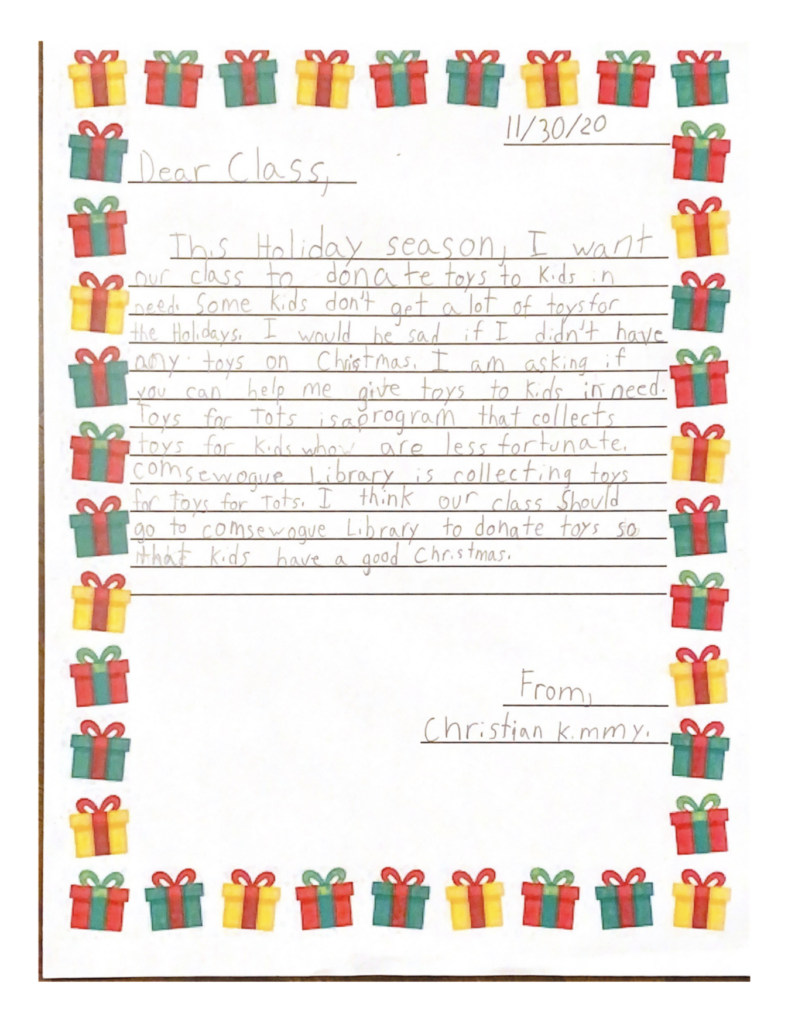 11/30/20
Dear Class,
This Holiday season, I want
our class to donate toys to kids in
need. Some kids don't get a lot of toys for
the Holidays. I would be sad if I didn't have
any toys on Christmas. I am asking if
you can help me give toys to kids in need.
Toys for Tots is a program that collects
toys for kids whow are less fortunate.
comsewogue Library is collecting toys
for Toys for Tots. I think our class should
go to comsewogue Library to donate toys so
that kids have a good Christmas.
From,
Christian k.mmy.